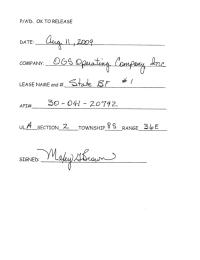 P/A'D. OK TO RELEASE
DATE: Aug 11, 2009
COMPANY: OGS Operating Company Inc
LEASE NAME and # State BF #1
API# 30-041-20792
UL A SECTION 2 TOWNSHIP 8S RANGE 36E
SIGNED: Brown